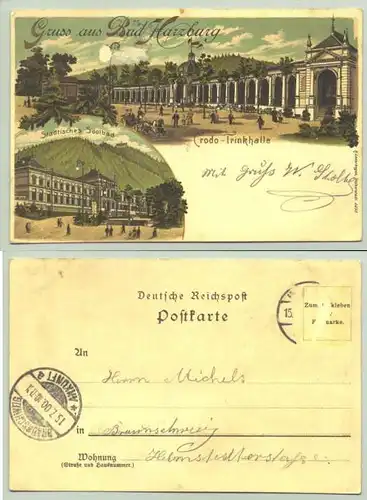 Gruss aus Bad Harzburg
Städtisches Soolbad
Crodo-Trinkhalle
Mit Gruß W.
Deutsche Reichspost
Postkarte
Zum kleben
marke.
15.
An
Herrn Michels
in Braunschweig
Wohnung Helmstedterstraße
(Straße und Hausnummer)
BRAUNSCHWEIG
15.7.00.
* ANKUNFT 4